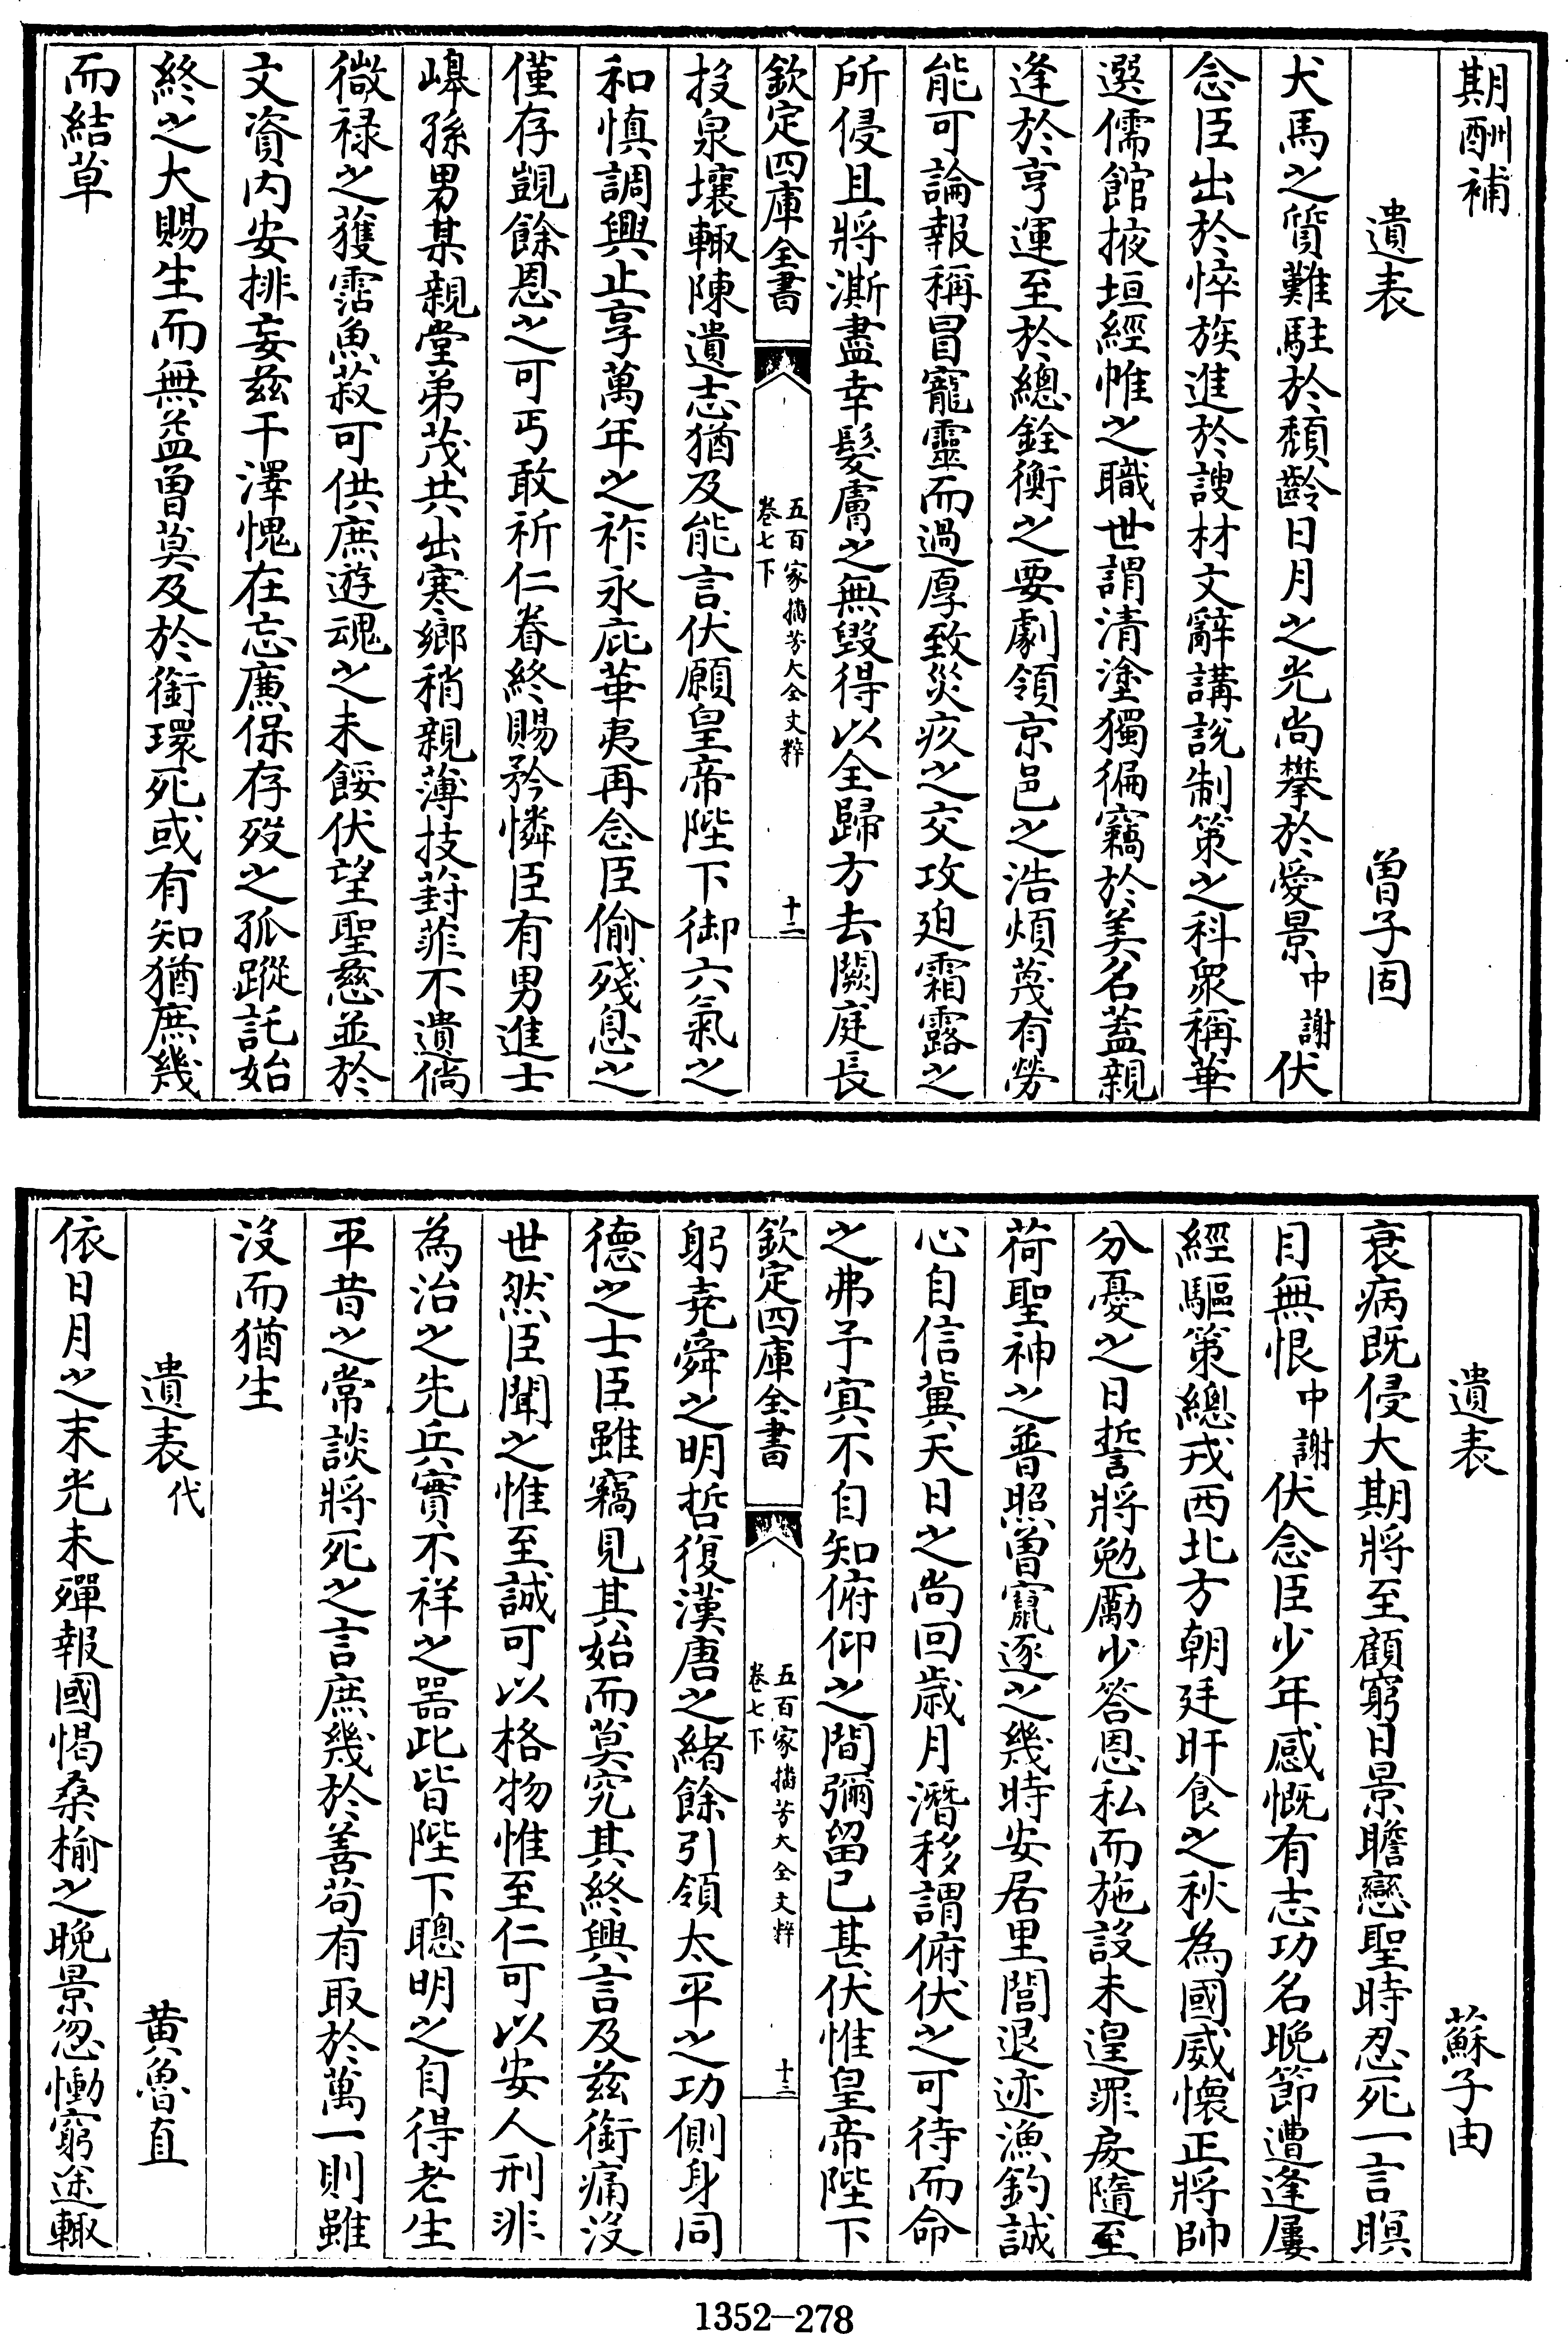 期酬補
遺表 曾子固
犬馬之質難駐於頹齡日月之光尚攀於愛景中謝伏
念臣出於悴族進於謏材文辭講說制策之科衆稱華
選儒館掖垣經帷之職世謂清塗獨徧竊於美名蓋親
逢於亨運至於總銓衡之要劇領京邑之浩煩蔑有勞
能可論報稱冒寵靈而過厚致災疚之交攻廹霜露之
所侵且將澌盡幸髮膚之無毀得以全歸方去闕庭長
欽定四庫全書
五百家播芳大全文粹
卷七下
十二
投泉壤輙陳遺志猶及能言伏願皇帝陛下御六氣之
和慎調興止享萬年之祚永庇華夷再念臣偷殘息之
僅存覬餘恩之可丐敢祈仁眷終賜矜憐臣有男進士
嶧孫男某親堂弟茂共出寒鄉稍親薄技葑菲不遺倘
微祿之獲霑魚菽可供庶遊魂之未餒伏望聖慈並於
文資内安排妄兹干澤愧在忘廉保存殁之孤蹤託始
終之大賜生而無益曾莫及於銜環死或有知猶庶幾
而結草
遺表 蘇子由
衰病既侵大期將至顧窮日景瞻戀聖時忍死一言瞑
目無恨中謝伏念臣少年感慨有志功名晚節遭逢屢
經驅策總戎西北方朝廷旰食之秋為國威懷正將帥
分憂之日誓將勉勵少答恩私而施設未遑罪戾隨至
荷聖神之普照曽竄逐之幾時安居里閭退迹漁釣誠
心自信冀天日之尚回歲月潛移謂俯伏之可待而命
之弗予寔不自知俯仰之間彌留已甚伏惟皇帝陛下
欽定四庫全書
五百家播芳大全文粹
卷七下
十三
躬堯舜之明哲復漢唐之緒餘引領太平之功側身同
德之士臣雖竊見其始而莫究其終興言及兹銜痛沒
世然臣聞之惟至誠可以格物惟至仁可以安人刑非
為治之先兵實不祥之噐此皆陛下聰明之自得老生
平昔之常談將死之言庶幾於善苟有取於萬一則雖
沒而猶生
遺表代 黄魯直
依日月之末光未殫報國愒桑榆之晚景忽慟窮途輙
1352-278